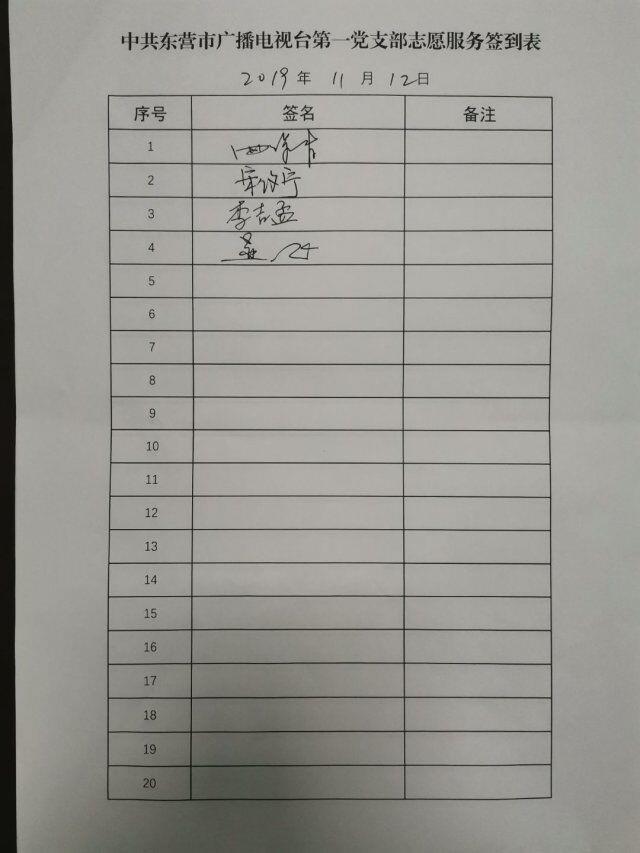 中共东营市广播电视台第一党支部志愿服务签到表
2019年 11月 12日
序号 签名 备注
1
2
3 李吉孟
4
5
6
7
8
9
10
11
12
13
14
15
16
17
18
19
20